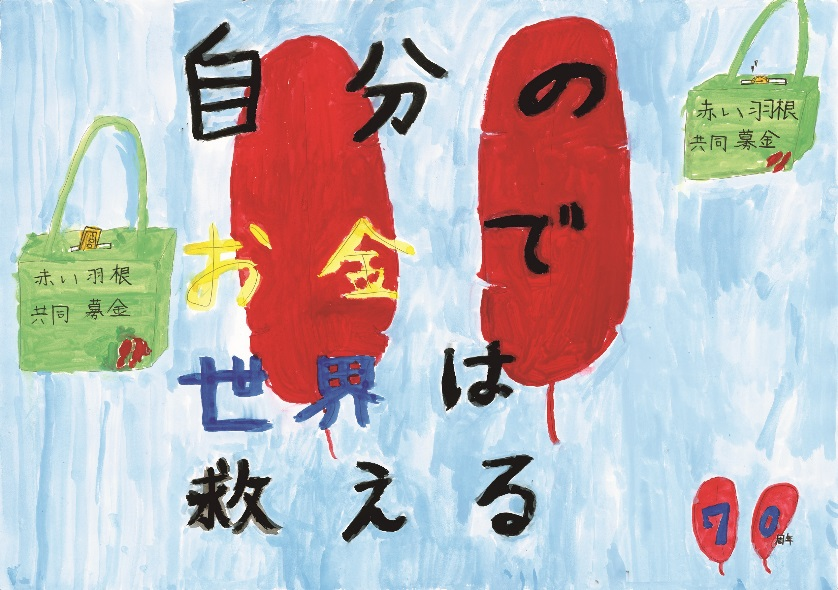 自分の
お金で
世界は
救える
赤い羽根
共同募金
赤い羽根
共同募金
70
周年